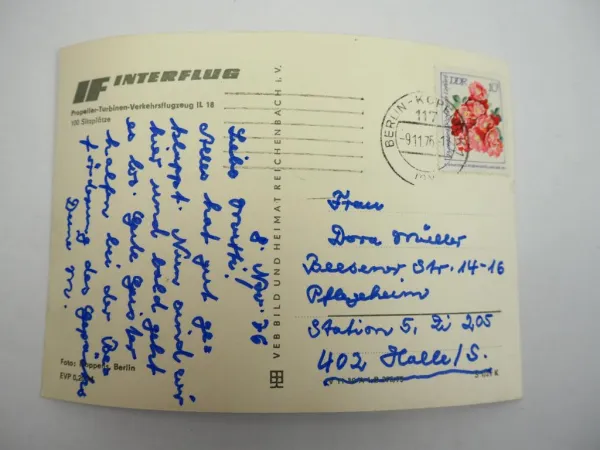 IF INTERFLUG
Propeller-Turbinen-Verkehrsflugzeug IL 18
100 Sitzplätze
8. Nov. 76
Liebe Mutti!
Alles hat gut ge-
klappt. Nun sind wir
hier und bald geht
es los. Gute Geister
halfen bei der Be-
förderung des Gepäcks
Deine M.
Foto: Hoppens, Berlin
EVP 0,20 M
VEB BILD UND HEIMAT REICHENBACH i. V.
DDR
10
BERLIN-KÖP
117
-9.11.76-11
Frau
Dora Müller
Beesener Str. 14-16
Pflegeheim
Station 5, Zi 205
402 Halle/S.